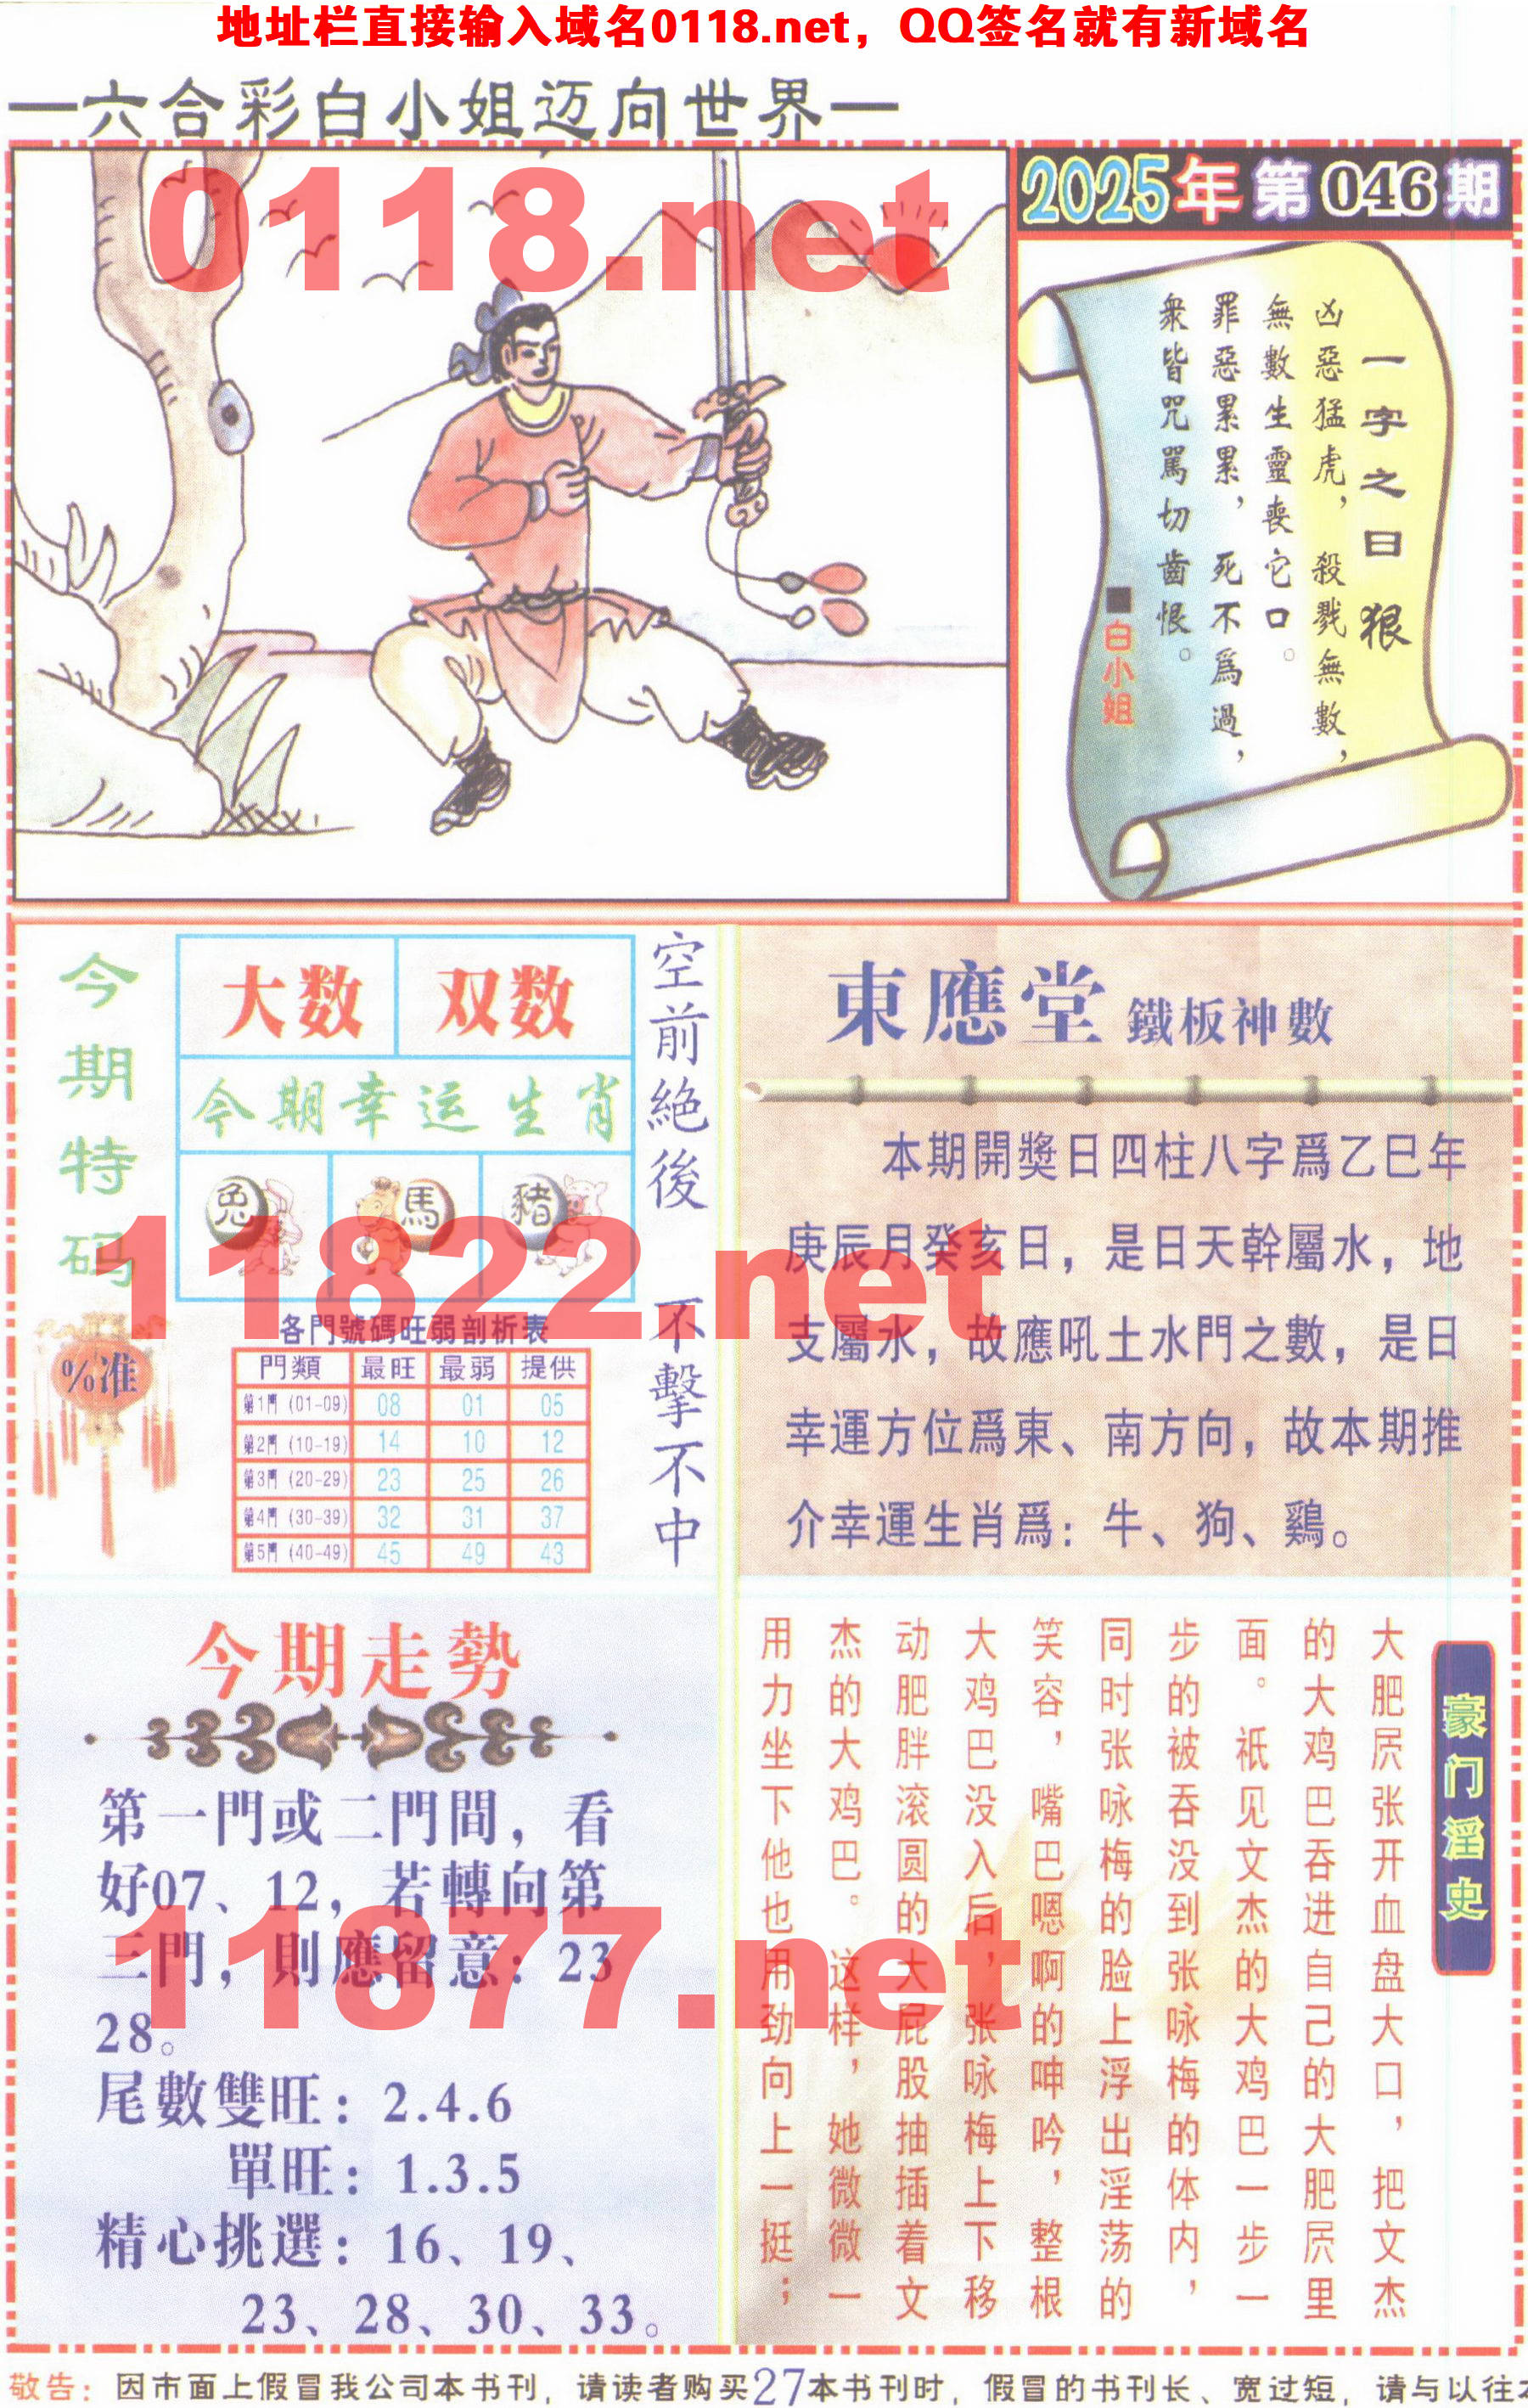 地址栏直接输入域名0118.net，QQ签名就有新域名
—六合彩白小姐迈向世界—
0118.net
2025年第046期
一字之曰狠
凶惡猛虎，殺戮無數，
無數生靈喪它口。
罪惡累累，死不爲過，
衆皆咒罵切齒恨。
■白小姐
今期特码
%准
大数 双数
今期幸运生肖
兔 馬 豬
各門號碼旺弱剖析表
門類 最旺 最弱 提供
第1門 (01-09) 08 01 05
第2門 (10-19) 14 10 12
第3門 (20-29) 23 25 26
第4門 (30-39) 32 31 37
第5門 (40-49) 45 49 43
空前絕後 不擊不中
11822.net
東應堂 鐵板神數
本期開獎日四柱八字爲乙巳年
庚辰月癸亥日，是日天幹屬水，地
支屬水，故應吼土水門之數，是日
幸運方位爲東、南方向，故本期推
介幸運生肖爲：牛、狗、鷄。
今期走勢
第一門或二門間，看
好07、12，若轉向第
三門，則應留意：23
28。
尾數雙旺：2.4.6
單旺：1.3.5
精心挑選：16、19、
23、28、30、33。
11877.net
豪门淫史
大肥屄张开血盘大口，把文杰
的大鸡巴吞进自己的大肥屄里
面。祇见文杰的大鸡巴一步一
步的被吞没到张咏梅的体内，
同时张咏梅的脸上浮出淫荡的
笑容，嘴巴嗯啊的呻吟，整根
大鸡巴没入后，张咏梅上下移
动肥胖滚圆的大屁股抽插着文
杰的大鸡巴。这样，她微微一
用力坐下他也用劲向上一挺；
敬告：因市面上假冒我公司本书刊，请读者购买27本书刊时，假冒的书刊长、宽过短，请与以往